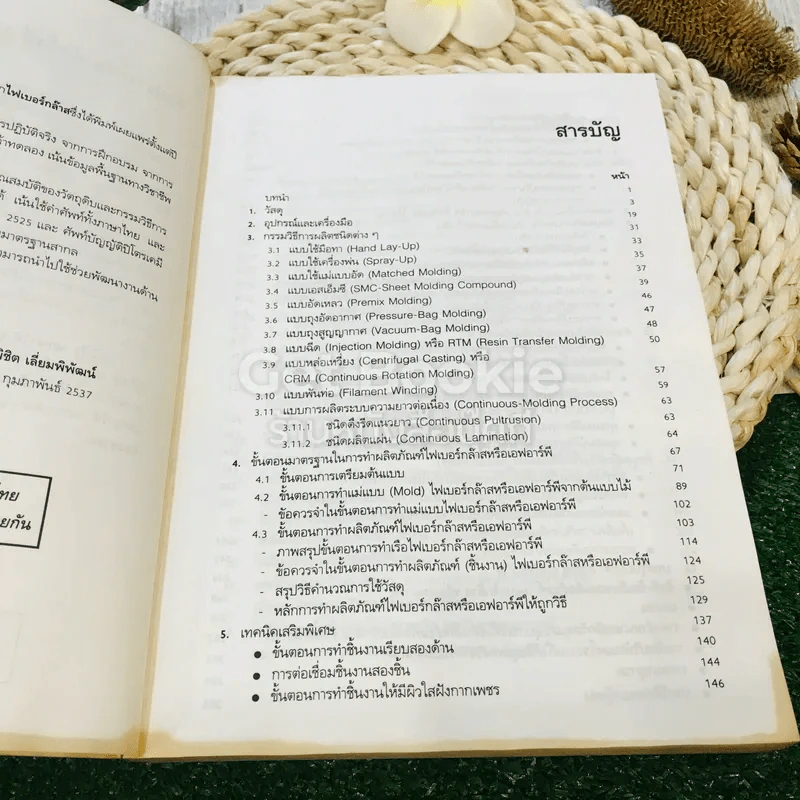 ไฟเบอร์กล๊าสซึ่งได้พิมพ์เผยแพร่ตั้งแต่ปี
รปฏิบัติจริง จากการฝึกอบรม จากการ
ทดลอง เน้นข้อมูลพื้นฐานทางวิชาชีพ
คุณสมบัติของวัตถุดิบและกรรมวิธีการ
เน้นใช้คำศัพท์ทั้งภาษาไทย และ
2525 และ ศัพท์บัญญัติปิโตรเคมี
มาตรฐานสากล
ามารถนำไปใช้ช่วยพัฒนางานด้าน
พิชิต เลี่ยมพิพัฒน์
กุมภาพันธ์ 2537
ไทย
ยกัน
สารบัญ
หน้า
บทนำ 1
1. วัสดุ 3
2. อุปกรณ์และเครื่องมือ 19
3. กรรมวิธีการผลิตชนิดต่าง ๆ 31
3.1 แบบใช้มือทา (Hand Lay-Up) 33
3.2 แบบใช้เครื่องพ่น (Spray-Up) 35
3.3 แบบใช้แม่แบบอัด (Matched Molding) 37
3.4 แบบเอสเอ็มซี (SMC-Sheet Molding Compound) 39
3.5 แบบอัดเหลว (Premix Molding) 46
3.6 แบบถุงอัดอากาศ (Pressure-Bag Molding) 47
3.7 แบบถุงสูญญากาศ (Vacuum-Bag Molding) 48
3.8 แบบฉีด (Injection Molding) หรือ RTM (Resin Transfer Molding) 50
3.9 แบบหล่อเหวี่ยง (Centrifugal Casting) หรือ
CRM (Continuous Rotation Molding) 57
3.10 แบบพันท่อ (Filament Winding) 59
3.11 แบบการผลิตระบบความยาวต่อเนื่อง (Continuous-Molding Process) 63
3.11.1 ชนิดดึงรีดแนวยาว (Continuous Pultrusion) 63
3.11.2 ชนิดผลิตแผ่น (Continuous Lamination) 64
4. ขั้นตอนมาตรฐานในการทำผลิตภัณฑ์ไฟเบอร์กล๊าสหรือเอฟอาร์พี 67
4.1 ขั้นตอนการเตรียมต้นแบบ 71
4.2 ขั้นตอนการทำแม่แบบ (Mold) ไฟเบอร์กล๊าสหรือเอฟอาร์พีจากต้นแบบไม้ 89
- ข้อควรจำในขั้นตอนการทำแม่แบบไฟเบอร์กล๊าสหรือเอฟอาร์พี 102
4.3 ขั้นตอนการทำผลิตภัณฑ์ไฟเบอร์กล๊าสหรือเอฟอาร์พี 103
- ภาพสรุปขั้นตอนการทำเรือไฟเบอร์กล๊าสหรือเอฟอาร์พี 114
- ข้อควรจำในขั้นตอนการทำผลิตภัณฑ์ (ชิ้นงาน) ไฟเบอร์กล๊าสหรือเอฟอาร์พี 124
- สรุปวิธีคำนวณการใช้วัสดุ 125
- หลักการทำผลิตภัณฑ์ไฟเบอร์กล๊าสหรือเอฟอาร์พีให้ถูกวิธี 129
5. เทคนิคเสริมพิเศษ 137
● ขั้นตอนการทำชิ้นงานเรียบสองด้าน 140
● การต่อเชื่อมชิ้นงานสองชิ้น 144
● ขั้นตอนการทำชิ้นงานให้มีผิวใสฝังกากเพชร 146